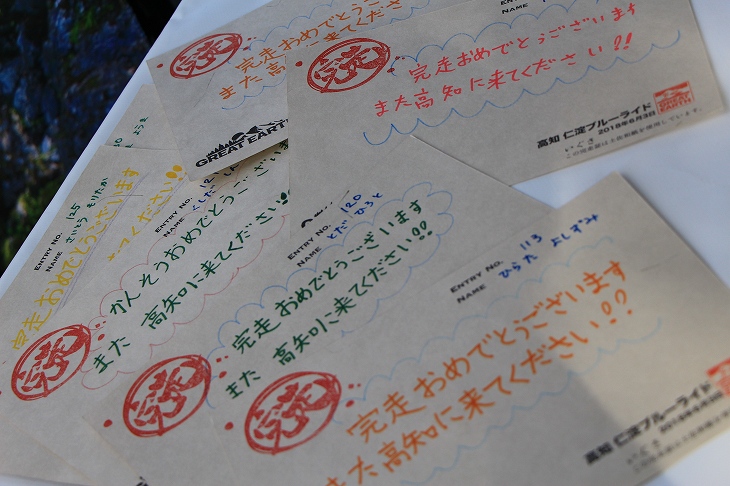 完走おめでとうございます
また高知に来てください
GREAT EARTH
ENTRY NO.
NAME
完走
完走おめでとうございます
また高知に来てください!!
高知 仁淀ブルーライド
2018年6月3日
いぐさ
この完走証は土佐和紙を使用しています。
ENTRY NO. 125
NAME さいとう そりたか
完走おめでとうございます
ください!!
ENTRY NO. 12
NAME
完走
かんそうおめでとうございます
また 高知に来てください!!
ENTRY NO. 120
NAME とだ ひろと
完走
完走おめでとうございます
また 高知に来てください!!
ENTRY NO. 113
NAME ひらた よしずみ
完走
完走おめでとうございます
また高知に来てください!!
高知 仁淀ブルーライド
2018年6月3日